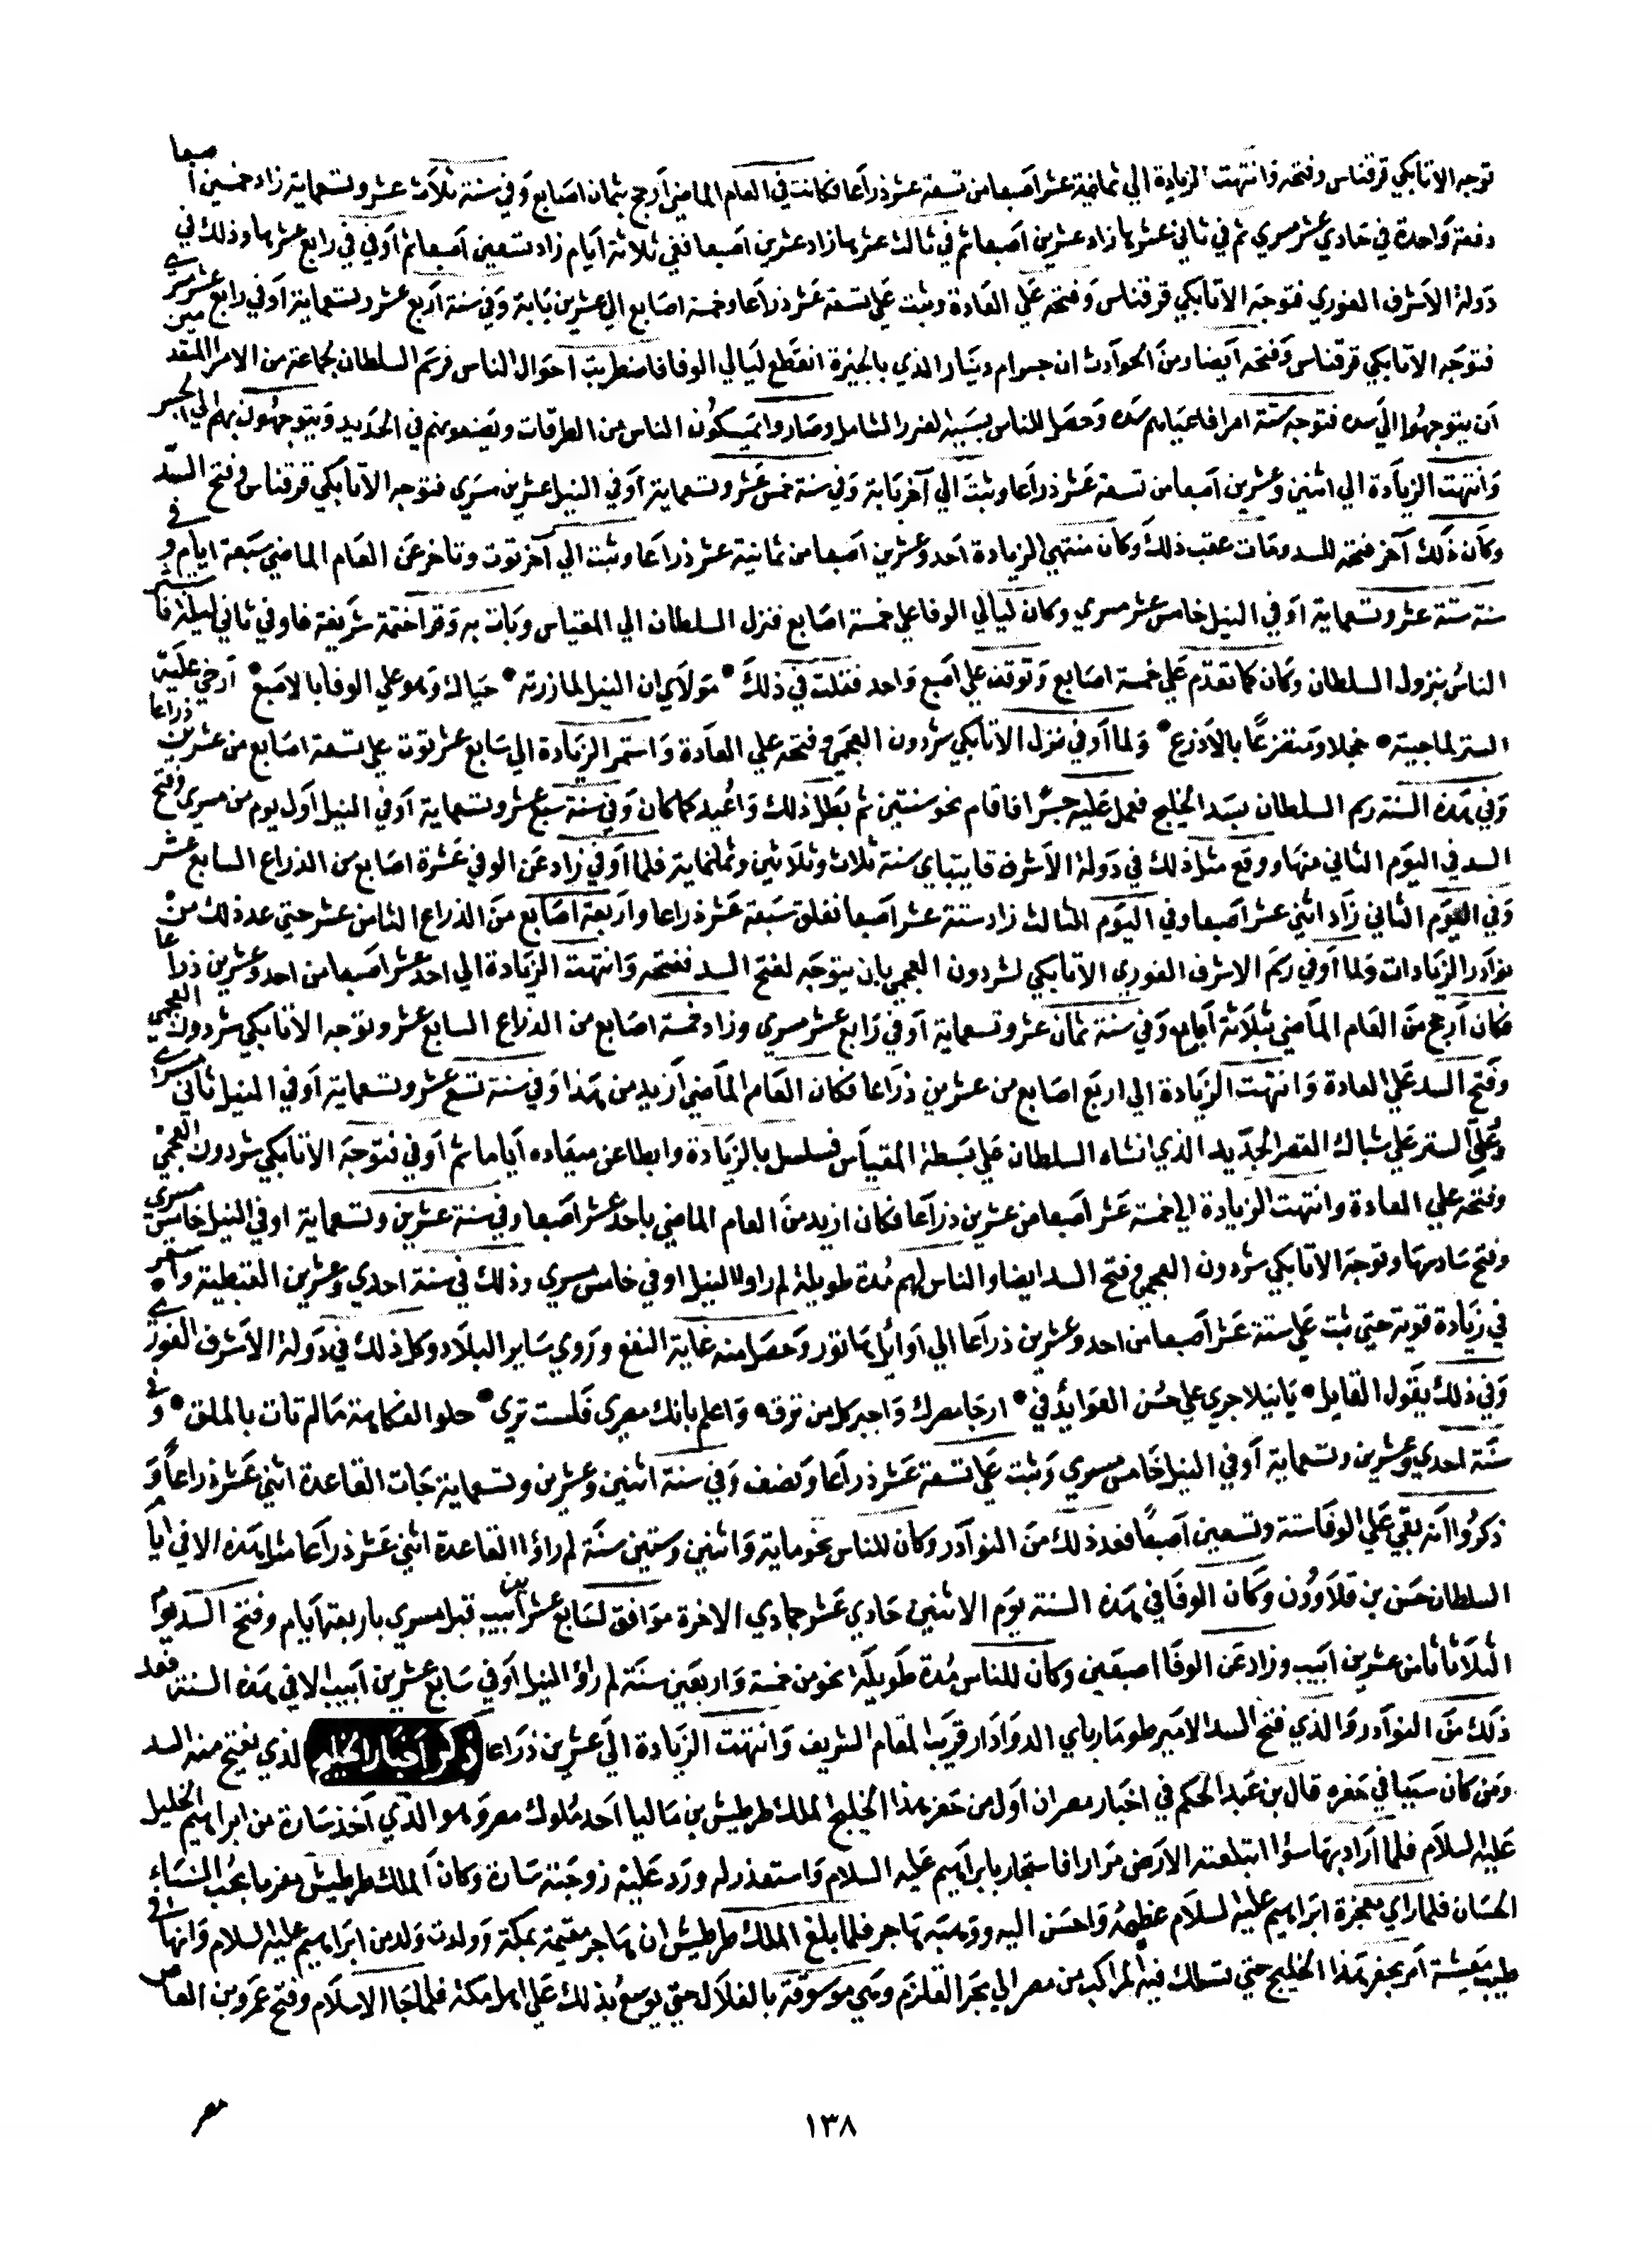 توجه الاتابكي قرقناس وفتحه وانتهت الزيادة الي ثمانية عشر اصبعا من تسعة عشر ذراعا فكانت في العام الماضي ارجح بثمان اصابع وفي سنة ثلاث عشر وتسعماية زاد خمسين اصبعا
دفعة واحدة في حادي عشر مسري ثم في ثاني عشرها زاد عشرين اصبعا ثم في ثالث عشرها زاد عشرين اصبعا ففي ثلاثة ايام زاد تسعين اصبعا ثم اوفي في رابع عشرها وذلك في
دولة الاشرف الغوري فتوجه الاتابكي قرقناس وفتحه علي العادة وثبت علي تسعة عشر ذراعا وخمسة اصابع الي عشرين بابة وفي سنة اربع عشر وتسعماية اوفي رابع عشر مسري
فتوجه الاتابكي قرقناس وفتحه ايضا ومن الحوادث ان جسر ام دينار الذي بالجيزة انقطع ليالي الوفا فاضطربت احوال الناس فرسم السلطان لجماعة من الامرا المقدمين
ان يتوجهوا الي سده فتوجه ستة امرا فاعياهم سده وحصل للناس بسببه الضرر الشامل وصاروا يمسكون الناس من الطرقات ويضعونهم في الحديد ويتوجهون بهم الي الجسر
وانتهت الزيادة الي اثنين وعشرين اصبعا من تسعة عشر ذراعا وثبت الي آخر بابة وفي سنة خمس عشر وتسعماية اوفي النيل عشرين مسري فتوجه الاتابكي قرقناس وفتح السد
وكان ذلك آخر فتحه للسد ومات عقب ذلك وكان منتهي الزيادة احد وعشرين اصبعا من ثمانية عشر ذراعا وثبت الي آخر توت وتاخر عن العام الماضي سبعة ايام وفي
سنة ستة عشر وتسعماية اوفي النيل خامس عشر مسري وكان ليالي الوفا علي خمسة اصابع فنزل السلطان الي المقياس وبات به وقرا ختمة شريفة فاوفي ثاني ليلة
الناس بنزول السلطان وكان كما تقدم علي خمسة اصابع وتوقف علي اصبع واحد فقلت في ذلك • مولاي ان النيل لما زرته • حياك وهو علي الوفا بالاصبع • ارخي عليه
الستر لما جيته • خجلا ومتضرعا بالاذرع • ولما اوفي نزل الاتابكي سودون العجمي وفتحه علي العادة واستمر الزيادة الي سابع عشر توت علي تسعة اصابع من عشرين ذراعا
وفي هذه السنة رسم السلطان بسد الخليج فعمل عليه جسرا فاقام نحو سنتين ثم بطل ذلك واعيد كما كان وفي سنة سبع عشر وتسعماية اوفي النيل اول يوم من مسري وفتح
السد في اليوم الثاني منها ووقع مثل ذلك في دولة الاشرف قايتباي سنة ثلاث وثلاثين وثمانماية فلما اوفي زاد عن الوفي عشرة اصابع من الذراع السابع عشر
وفي اليوم الثاني زاد اثني عشر اصبعا وفي اليوم الثالث زاد ستة عشر اصبعا فغلق سبعة عشر ذراعا واربعة اصابع من الذراع الثامن عشر حتي عد ذلك من
نوادر الزيادات ولما اوفي رسم الاشرف الغوري الاتابكي لسودون العجمي بان يتوجه لفتح السد ففتحه وانتهت الزيادة الي احد عشر اصبعا من احد وعشرين ذراعا
فكان ارجح من العام الماضي بثلاثة اصابع وفي سنة ثمان عشر وتسعماية اوفي رابع عشر مسري وزاد خمسة اصابع من الذراع السابع عشر وتوجه الاتابكي سودون العجمي
وفتح السد علي العادة وانتهت الزيادة الي اربع اصابع من عشرين ذراعا فكان العام الماضي ازيد من هذا وفي سنة تسع عشر وتسعماية اوفي النيل ثاني مسري
وعلق الستر علي شباك القصر الجديد الذي انشاه السلطان علي بسطة المقياس فسلسل بالزيادة وابطا عن ميعاده اياما ثم اوفي فتوجه الاتابكي سودون العجمي
وفتحه علي العادة وانتهت الزيادة الي خمسة عشر اصبعا من عشرين ذراعا فكان ازيد من العام الماضي باحد عشر اصبعا وفي سنة عشرين وتسعماية اوفي النيل خامس مسري
وفتح سادسها وتوجه الاتابكي سودون العجمي وفتح السد ايضا والناس لهم مدة طويلة لم راوا النيل اوفي خامس مسري وذلك في سنة احدي وعشرين القبطية واستمر
في زيادة قوية حتي ثبت علي ستة عشر اصبعا من احد وعشرين ذراعا الي اوايل هاتور وحصل منه غاية النفع وروي ساير البلاد وكل ذلك في دولة الاشرف الغوري
وفي ذلك يقول القايل • يا نيل اجري علي حسن العوايد في • ارجا مصرك واجبر كل من ترق واعلم بانك مصري فلست تري • حلو الفكاهة مالم تات بالملق • وفي
سنة احدي وعشرين وتسعماية اوفي النيل خامس مسري وثبت علي تسعة عشر ذراعا ونصف وفي سنة اثنين وعشرين وتسعماية جات القاعدة اثني عشر ذراعا و
ذكروا انه بقي علي الوفا ستة وتسعين اصبعا فعد ذلك من النوادر وكان للناس نحو ماية واثنين وستين سنة لم راوا القاعدة اثني عشر ذراعا مثل هذه الا في ايام
السلطان حسن بن قلاوون وكان الوفا في هذه السنة يوم الاثنين حادي عشر جمادي الاخرة موافق لسابع عشرين ابيب قبل مسري باربعة ايام وفتح السد يوم
الثلاثا ثامن عشرين ابيب وزاد عن الوفا اصبعين وكان للناس مدة طويلة نحو من خمسة واربعين سنة لم راوا النيل اوفي سابع عشرين ابيب الا في هذه السنة فعد
ذلك من النوادر والذي فتح السد الامير طومان باي الدوادار قريب المقام الشريف وانتهت الزيادة الي عشرين ذراعا ذكر اخبار الخليج الذي يفتح منه السد
ومن كان سببا في حفره قال بن عبد الحكم في اخبار مصر ان اول من حفر هذا الخليج الملك طرطيش بن ماليا احد ملوك مصر وهو الذي اخذ سارة من ابراهيم الخليل
عليه السلام فلما اراد بها سوا ابتلعته الارض مرارا فاستجار بابراهيم عليه السلام واستعذر له ورد عليه زوجته سارة وكان الملك طرطيش مغرما بحب النساء
الحسان فلما راي معجزة ابراهيم عليه السلام عظمه واحسن اليه ووهبه هاجر فلما بلغ الملك طرطيش ان هاجر مقيمة بمكة وولدت ولد من ابراهيم عليه السلام وانها في
طيب معيشة امر بحفر هذا الخليج حتي تسلك فيه المراكب من مصر الي بحر القلزم وهي موسوقة بالغلال حتي يوسع بذلك علي اهل مكة فلما جا الاسلام وفتح عمرو بن العاص
مصر
١٣٨